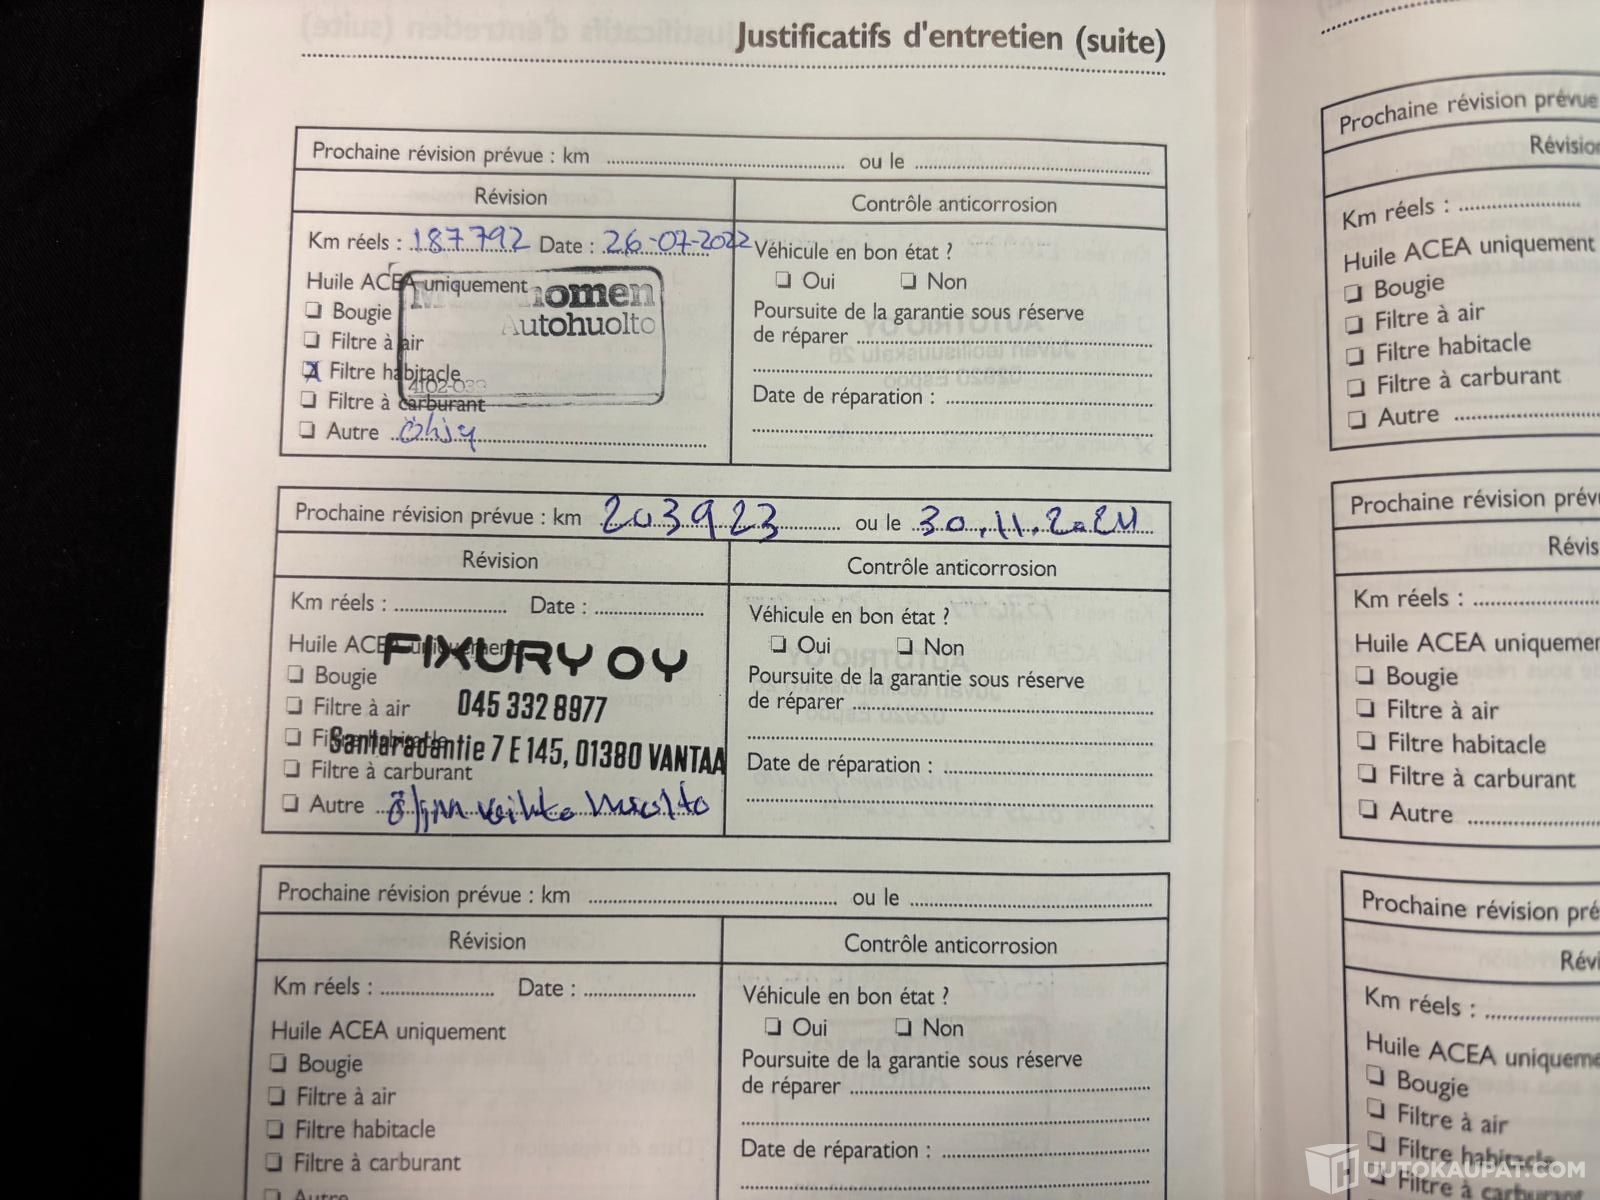 Justificatifs d'entretien (suite)
Prochaine révision prévue : km ou le
Révision
Contrôle anticorrosion
Km réels : 187792 Date : 26-07-2022
Huile ACEA uniquement
❏ Bougie
❏ Filtre à air
☒ Filtre habitacle
❏ Filtre à carburant
❏ Autre
omen
Autohuolto
4102-039
Véhicule en bon état ?
❏ Oui ❏ Non
Poursuite de la garantie sous réserve
de réparer
Date de réparation :
Prochaine révision prévue : km 203923 ou le 30.11.2024
Révision
Contrôle anticorrosion
Km réels : Date :
Huile ACEA uniquement
❏ Bougie
❏ Filtre à air
❏ Filtre habitacle
❏ Filtre à carburant
❏ Autre öljyn veihto huolto
FIXURY OY
045 332 8977
Santaradantie 7 E 145, 01380 VANTAA
Véhicule en bon état ?
❏ Oui ❏ Non
Poursuite de la garantie sous réserve
de réparer
Date de réparation :
Prochaine révision prévue : km ou le
Révision
Contrôle anticorrosion
Km réels : Date :
Huile ACEA uniquement
❏ Bougie
❏ Filtre à air
❏ Filtre habitacle
❏ Filtre à carburant
❏ Autre
Véhicule en bon état ?
❏ Oui ❏ Non
Poursuite de la garantie sous réserve
de réparer
Date de réparation :
Prochaine révision prévue
Révision
Km réels :
Huile ACEA uniquement
❏ Bougie
❏ Filtre à air
❏ Filtre habitacle
❏ Filtre à carburant
❏ Autre
Prochaine révision prév
Révis
Km réels :
Huile ACEA uniquemen
❏ Bougie
❏ Filtre à air
❏ Filtre habitacle
❏ Filtre à carburant
❏ Autre
Prochaine révision pré
Révi
Km réels :
Huile ACEA uniqueme
❏ Bougie
❏ Filtre à air
❏ Filtre habitacle
❏ Filtre à carburant
UUTOKAUPAT.COM